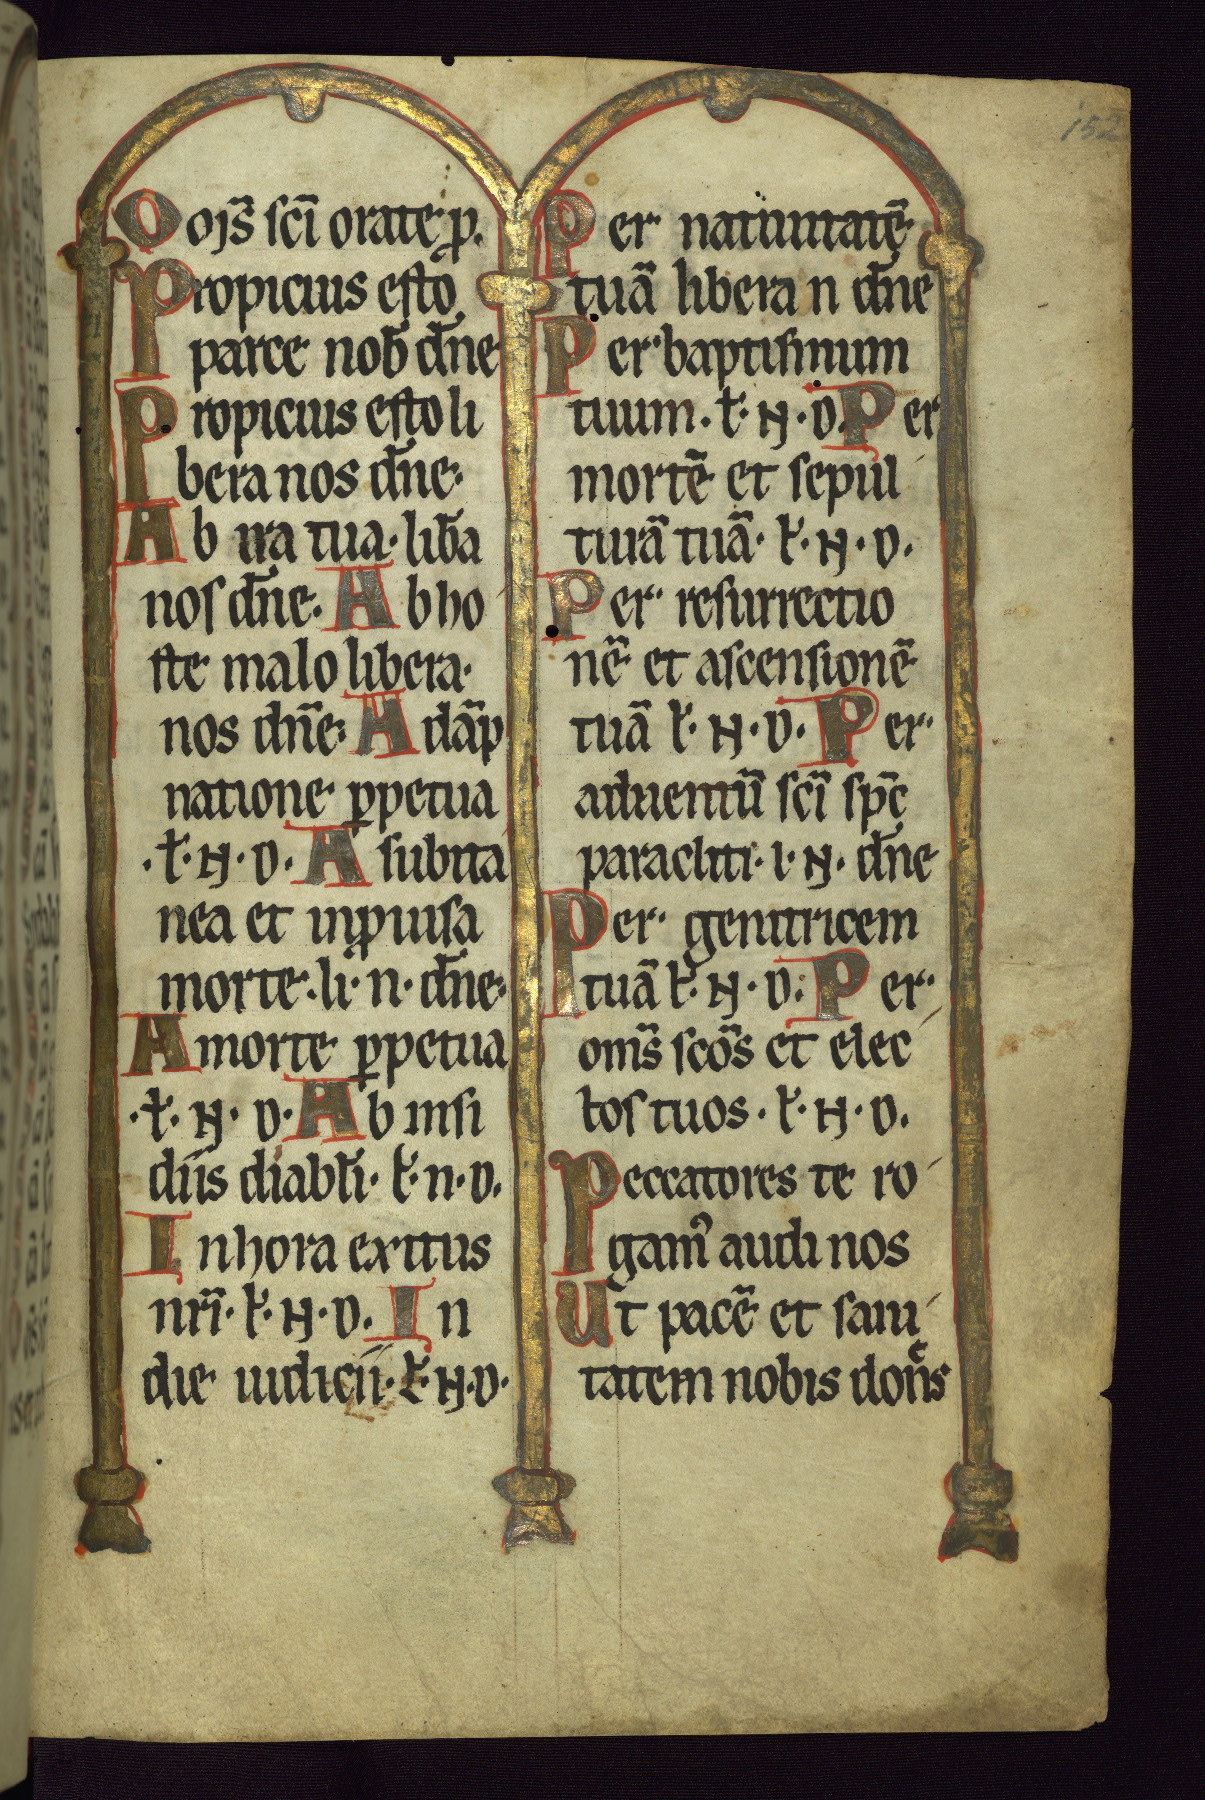 152
O om̄s sc̄i orate ꝓ.
Propicius esto
parce nob̄ dn̄e
Propicius esto li
bera nos dn̄e.
Ab ira tua. lib̄a
nos dn̄e. Ab ho
ste malo libera.
nos dn̄e. A dāp
natione ꝑpetua
.ł. N. D. A subita
nea et inꝓuisa
morte. li. n. dn̄e.
A morte ꝑpetua
.ł. N. D. Ab insi
diis diabłi. ł. n. D.
In hora exitus
nr̄i. ł. N. D. In
die iudicii. ł. N. D.
Per natiuitatē
tuā libera n dn̄e
Per baptismum
tuum. ł. N. D. Per
mortē et sepul
turā tuā. ł. N. D.
Per resurrectio
nē et ascensionē
tuā ł. N. D. Per
aduentū sc̄i sp̄c
paracliti. l. N. dn̄e
Per genitricem
tuā ł. N. D. Per
om̄s scōs et elec
tos tuos. ł. N. D.
Peccatores te ro
gamꝰ audi nos
Ut pacē et sani
tatem nobis dones